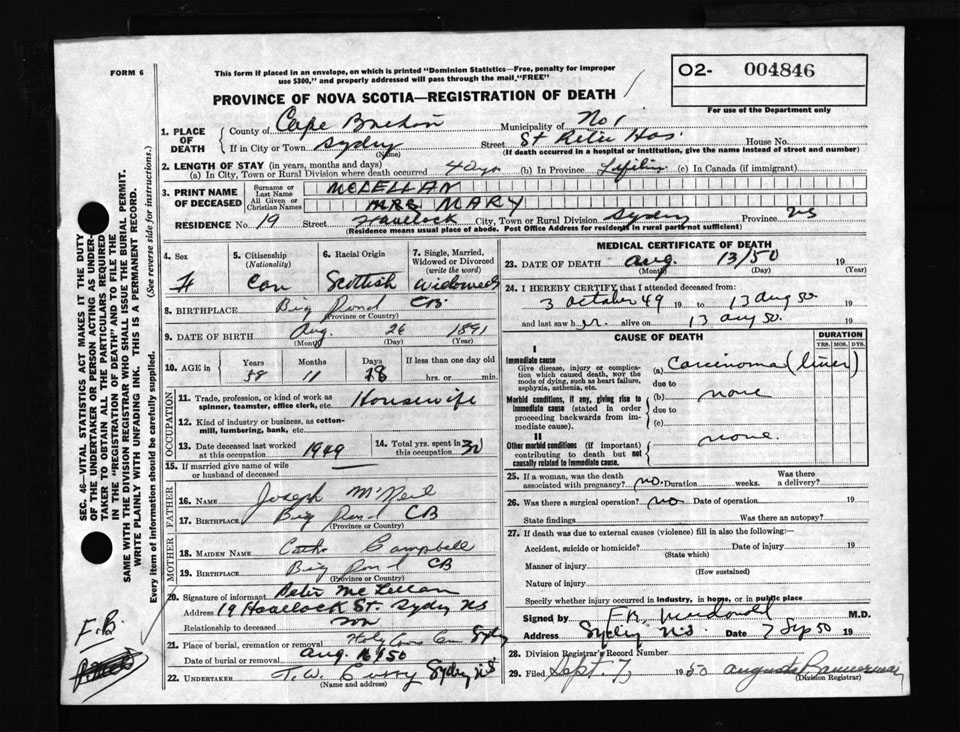 FORM 6
This form if placed in an envelope, on which is printed "Dominion Statistics—Free, penalty for improper
use $300," and properly addressed will pass through the mail, "FREE"
O2- 004846
For use of the Department only
PROVINCE OF NOVA SCOTIA—REGISTRATION OF DEATH
1. PLACE OF DEATH
County of Cape Breton Municipality of No 1
If in City or Town Sydney (Name) Street House No.
(If death occurred in a hospital or institution, give the name instead of street and number)
2. LENGTH OF STAY (in years, months and days)
(a) In City, Town or Rural Division where death occurred 4 dys (b) In Province Lifetime (c) In Canada (if immigrant)
3. PRINT NAME OF DECEASED
Surname or Last Name MCLELLAN
All Given or Christian Names MRS MARY
RESIDENCE No. 19 Street Havelock City, Town or Rural Division Sydney Province NS
(Residence means usual place of abode. Post Office Address for residents in rural parts not sufficient)
4. Sex F
5. Citizenship (Nationality) Can
6. Racial Origin Scottish
7. Single, Married, Widowed or Divorced (write the word) Widowed
8. BIRTHPLACE Big Pond CB
(Province or Country)
9. DATE OF BIRTH Aug. 26 1891
(Month) (Day) (Year)
10. AGE in Years 58 Months 11 Days 18 If less than one day old hrs. or min.
OCCUPATION
11. Trade, profession, or kind of work as spinner, teamster, office clerk, etc. Housewife
12. Kind of industry or business, as cotton-mill, lumbering, bank, etc.
13. Date deceased last worked at this occupation 1949
14. Total yrs. spent in this occupation 30
15. If married give name of wife or husband of deceased
FATHER
16. NAME Joseph McNeil
17. BIRTHPLACE Big Pond CB
(Province or Country)
MOTHER
18. MAIDEN NAME Cath. Campbell
19. BIRTHPLACE Big Pond CB
(Province or Country)
20. Signature of informant Peter McLellan
Address 19 Havelock St. Sydney NS
Relationship to deceased son
21. Place of burial, cremation or removal Holy Cross Cem Sydney
Date of burial or removal Aug. 16/50
22. UNDERTAKER T. W. Curry Sydney NS
(Name and address)
MEDICAL CERTIFICATE OF DEATH
23. DATE OF DEATH Aug. 13/50 19
(Month) (Day) (Year)
24. I HEREBY CERTIFY that I attended deceased from:
3 October 49 19 to 13 Aug 50 19
and last saw her alive on 13 Aug 50. 19
CAUSE OF DEATH
DURATION
YRS. MOS. DYS.
I
Immediate cause
Give disease, injury or complication which caused death, NOT the mode of dying, such as heart failure, asphyxia, asthenia, etc.
(a) Carcinoma (liver)
due to
Morbid conditions, if any, giving rise to immediate cause (stated in order proceeding backwards from immediate cause).
(b) none
due to
(c)
II
Other morbid conditions (if important) contributing to death but not causally related to immediate cause.
none.
25. If a woman, was the death associated with pregnancy? no. Duration weeks. Was there a delivery?
26. Was there a surgical operation? no Date of operation 19
State findings Was there an autopsy?
27. If death was due to external causes (violence) fill in also the following:
Accident, suicide or homicide? Date of injury 19
(State which)
Manner of injury
(How sustained)
Nature of injury
Specify whether injury occurred in industry, in home, or in public place
Signed by F.R. Macdonald M.D.
Address Sydney N.S. Date 7 Sep 50 19
28. Division Registrar's Record Number
29. Filed Sept. 7, 1950 Augusta Bannerman
(Division Registrar)
SEC. 46—VITAL STATISTICS ACT MAKES IT THE DUTY
OF THE UNDERTAKER OR PERSON ACTING AS UNDER-
TAKER TO OBTAIN ALL THE PARTICULARS REQUIRED
IN THE "REGISTRATION OF DEATH" AND TO FILE THE
SAME WITH THE DIVISION REGISTRAR WHO SHALL ISSUE THE BURIAL PERMIT.
WRITE PLAINLY WITH UNFADING INK. THIS IS A PERMANENT RECORD.
Every item of information should be carefully supplied. (See reverse side for instructions.)
E.B.